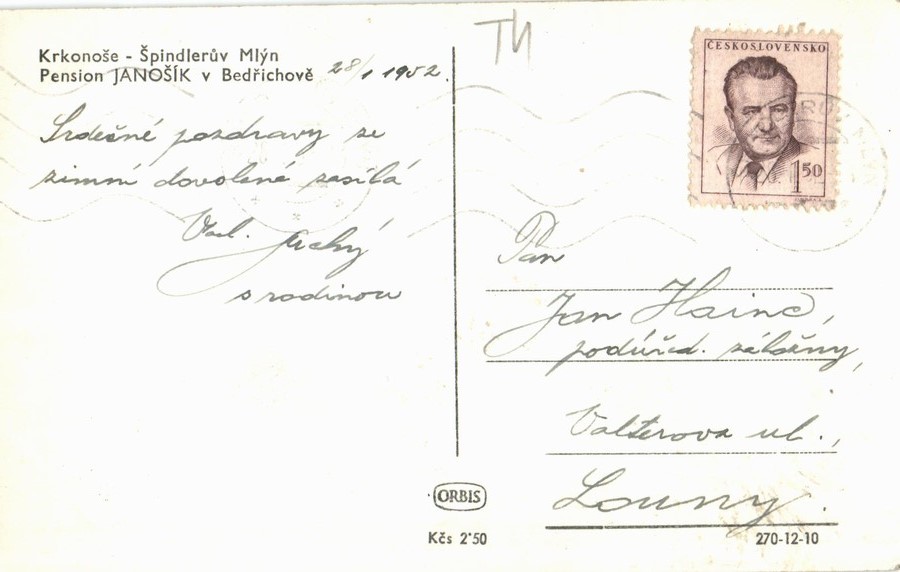 Krkonoše - Špindlerův Mlýn
Pension JANOŠÍK v Bedřichově 28/1 1952.
Srdečné pozdravy ze
zimní dovolené zasílá
Vad. Suchý
s rodinou
TH
ČESKOSLOVENSKO
1.50
Pan
Jan Hainc,
podúřed. záložny,
Valterova ul.,
Louny.
ORBIS
Kčs 2˙50
270-12-10